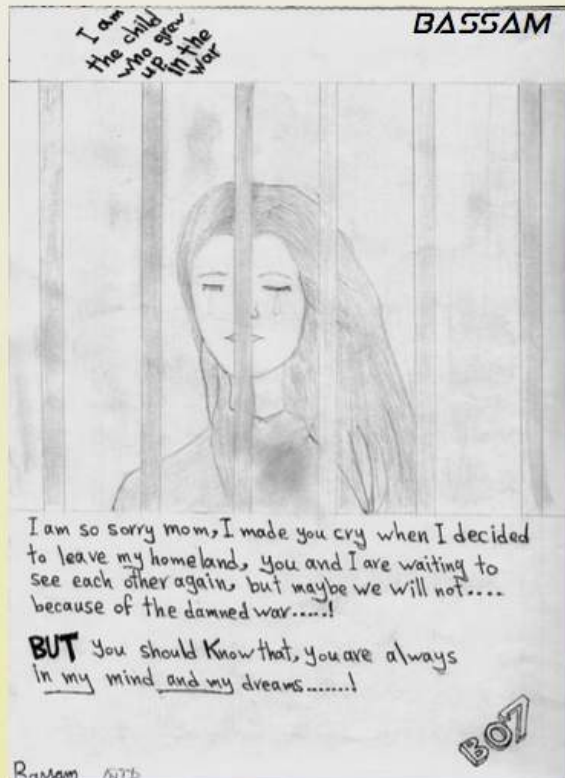 I am
the child
who grew
up in the
war
BASSAM
I am so sorry mom, I made you cry when I decided
to leave my homeland, you and I are waiting to
see each other again, but maybe we will not....
because of the damned war.....!
BUT you should Know that, you are always
in my mind and my dreams.......!
BO7
Bassam